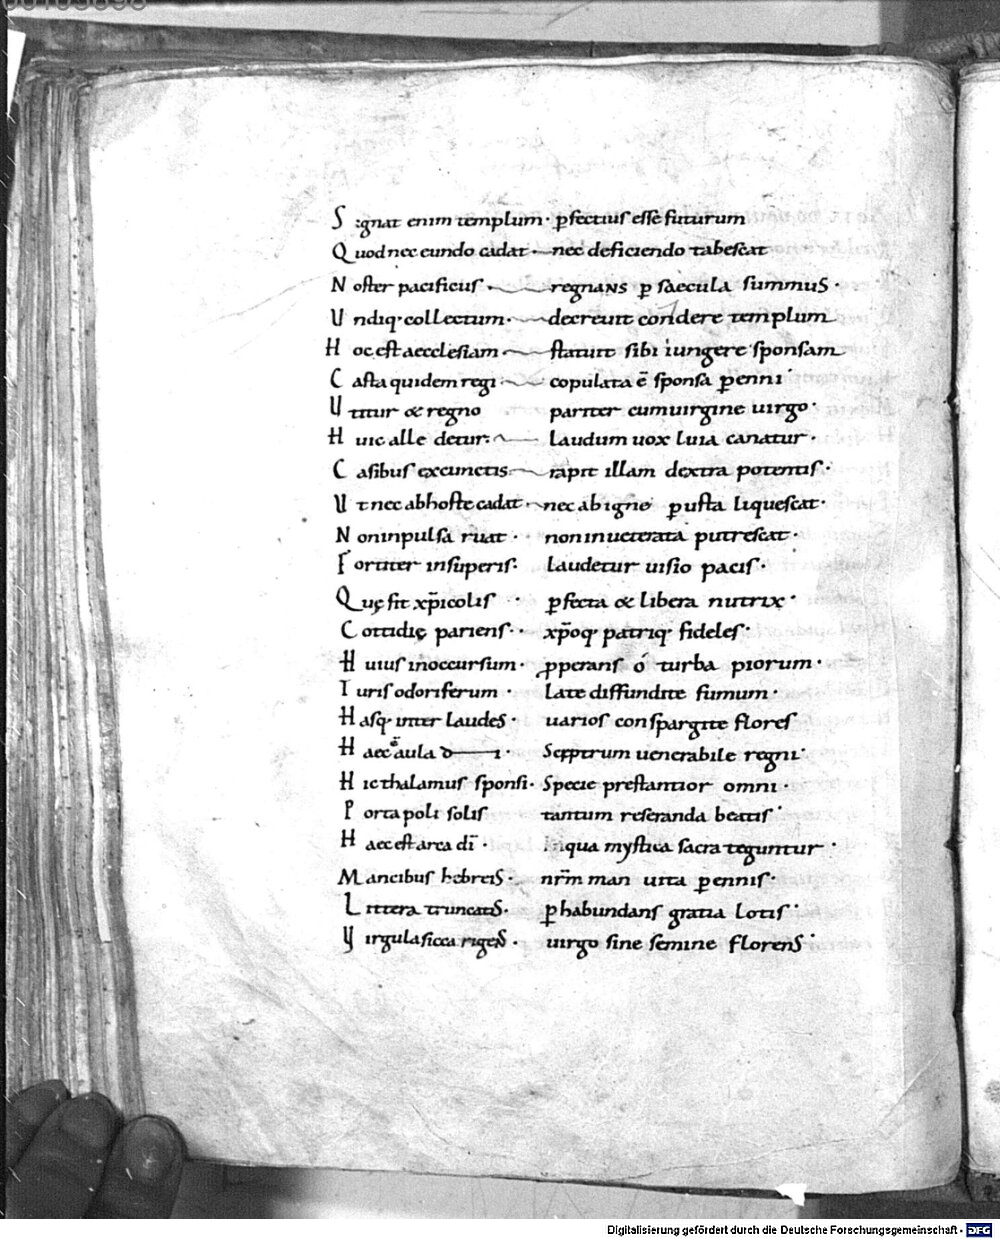 Signat enim templum· ꝑfectius esse futurum
Quod nec eundo cadat· nec deficiendo tabescat
Noster pacificus· regnans ꝑ saecula summus·
Undiq· collectum· decreuit condere templum
Hoc est aecclesiam statuit sibi iungere sponsam
Casta quidem regi copulata ē sponsa ꝑenni·
Utitur & regno pariter cum uirgine uirgo·
Huic alle detur· laudum uox luia canatur·
Casibus excunctis rapit illam dextra potentis·
Ut nec abhoste cadat· nec ab igne ꝑusta liquescat·
Non inpulsa ruat· non inueterata putrescat·
Fortiter insuperis· laudetur uisio pacis·
Quę sit xp̄icolis· ꝑfecta & libera nutrix·
Cottidię pariens· xp̄oq· patriq· fideles·
Huius inoccursum· ꝓperans ó turba piorum·
Turis odoriferum· late diffundite fumum·
Hasq· inter laudes· uarios conspargite flores
Haec ē aula d i· Sceptrum uenerabile regni·
Hic thalamus sponsi· Specie prestantior omni·
Porta poli solis tantum reseranda beatis·
Haec est arca dī· inqua mystica sacra teguntur·
Mancibus hebreis· nr̄m man uita ꝑennis·
Littera truncatis· ꝑhabundans gratia lotis·
Virgula sicca rigens· uirgo sine semine florens·
Digitalisierung gefördert durch die Deutsche Forschungsgemeinschaft - DFG